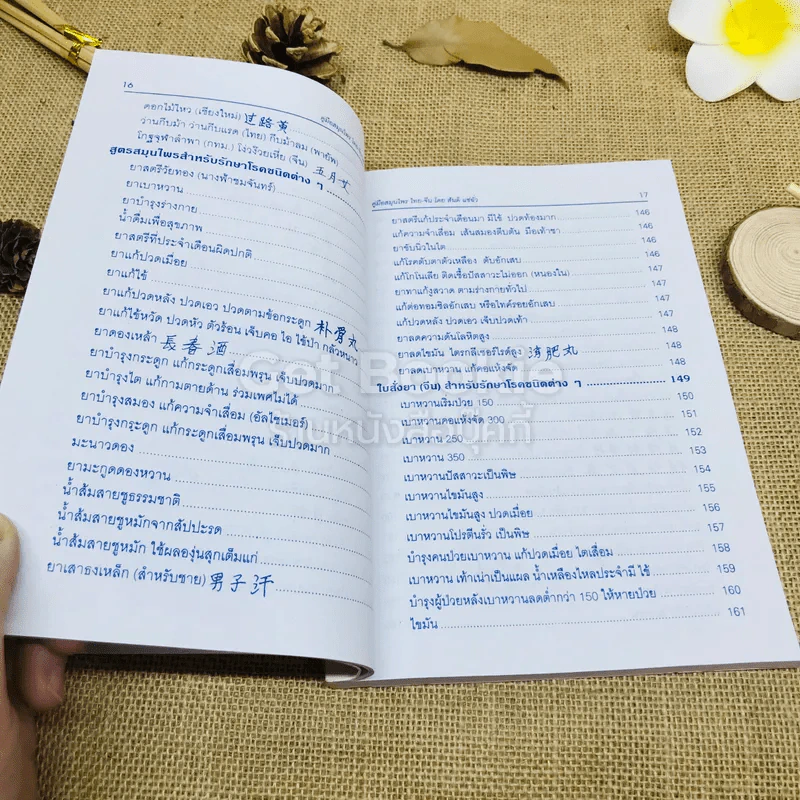 16
ดอกไม้ไหว (เชียงใหม่) 过路黄
ว่านกีบม้า ว่านกีบแรด (ไทย) กีบม้าลม (พายัพ)
โกฐจุฬาลำพา (กทม.) โงวง๊วยเหีย (จีน) 五月艾
สูตรสมุนไพรสำหรับรักษาโรคชนิดต่าง ๆ
ยาสตรีวัยทอง (นางฟ้าชมจันทร์)
ยาเบาหวาน
ยาบำรุงร่างกาย
น้ำดื่มเพื่อสุขภาพ
ยาสตรีที่ประจำเดือนผิดปกติ
ยาแก้ปวดเมื่อย
ยาแก้ไข้
ยาแก้ปวดหลัง ปวดเอว ปวดตามข้อกระดูก
ยาแก้ไข้หวัด ปวดหัว ตัวร้อน เจ็บคอ ไอ ไข้ป่า กลัวหนาว
ยาดองเหล้า 長春酒
ยาบำรุงกระดูก แก้กระดูกเสื่อมพรุน เจ็บปวดมาก
ยาบำรุงไต แก้กามตายด้าน ร่วมเพศไม่ได้
ยาบำรุงสมอง แก้ความจำเสื่อม (อัลไซเมอร์)
ยาบำรุงกระดูก แก้กระดูกเสื่อมพรุน เจ็บปวดมาก
มะนาวดอง
ยามะกูดดองหวาน
น้ำส้มสายชูธรรมชาติ
น้ำส้มสายชูหมักจากสัปปะรด
น้ำส้มสายชูหมัก ใช้ผลองุ่นสุกเต็มแก่
ยาเสาธงเหล็ก (สำหรับชาย) 男子汗
คู่มือสมุนไพร ไทย-จีน โดย สันติ แซ่ยัว 17
ยาสตรีแก้ประจำเดือนมา มีไข้ ปวดท้องมาก 146
แก้ความจำเสื่อม เส้นสมองตีบตัน มือเท้าชา 146
ยาขับนิ่วในไต 146
แก้โรคดับตาตัวเหลือง ดับอักเสบ 146
แก้โกโนเลีย ติดเชื้อปัสสาวะไม่ออก (หนองใน) 147
ยาทาแก้งูสวาด ตามร่างกายทั่วไป 147
แก้ต่อทอมซิลอักเสบ หรือไทค์รอยอักเสบ 147
แก้ปวดหลัง ปวดเอว เจ็บปวดเท้า 147
ยาลดความดันโลหิตสูง 148
ยาลดไขมัน ไตรกลีเซอร์ไรด์สูง 消肥丸 148
ยาลดเบาหวาน แก้คอแห้งจัด 148
ใบสั่งยา (จีน) สำหรับรักษาโรคชนิดต่าง ๆ 149
เบาหวานเริ่มป่วย 150 150
เบาหวานคอแห้งจัด 300 151
เบาหวาน 250 152
เบาหวาน 350 153
เบาหวานปัสสาวะเป็นพิษ 154
เบาหวานไขมันสูง 155
เบาหวานไขมันสูง ปวดเมื่อย 156
เบาหวานโปรตีนรั่ว เป็นพิษ 157
บำรุงคนป่วยเบาหวาน แก้ปวดเมื่อย ไตเสื่อม 158
เบาหวาน เท้าเน่าเป็นแผล น้ำเหลืองไหลประจำมี ไข้ 159
บำรุงผู้ป่วยหลังเบาหวานลดต่ำกว่า 150 ให้หายป่วย 160
ไขมัน 161
Get Bookie
ร้านหนังสือบุ๊คกี้